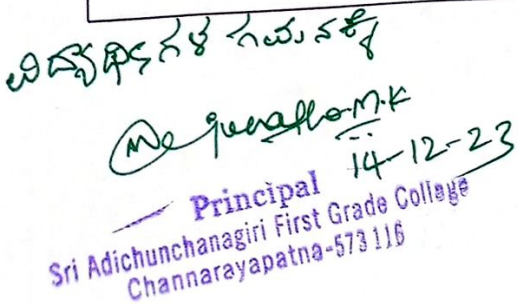 ವಿದ್ಯಾರ್ಥಿಗಳ ಗಮನಕ್ಕೆ
M.K
14-12-23
Principal
Sri Adichunchanagiri First Grade College
Channarayapatna-573 116